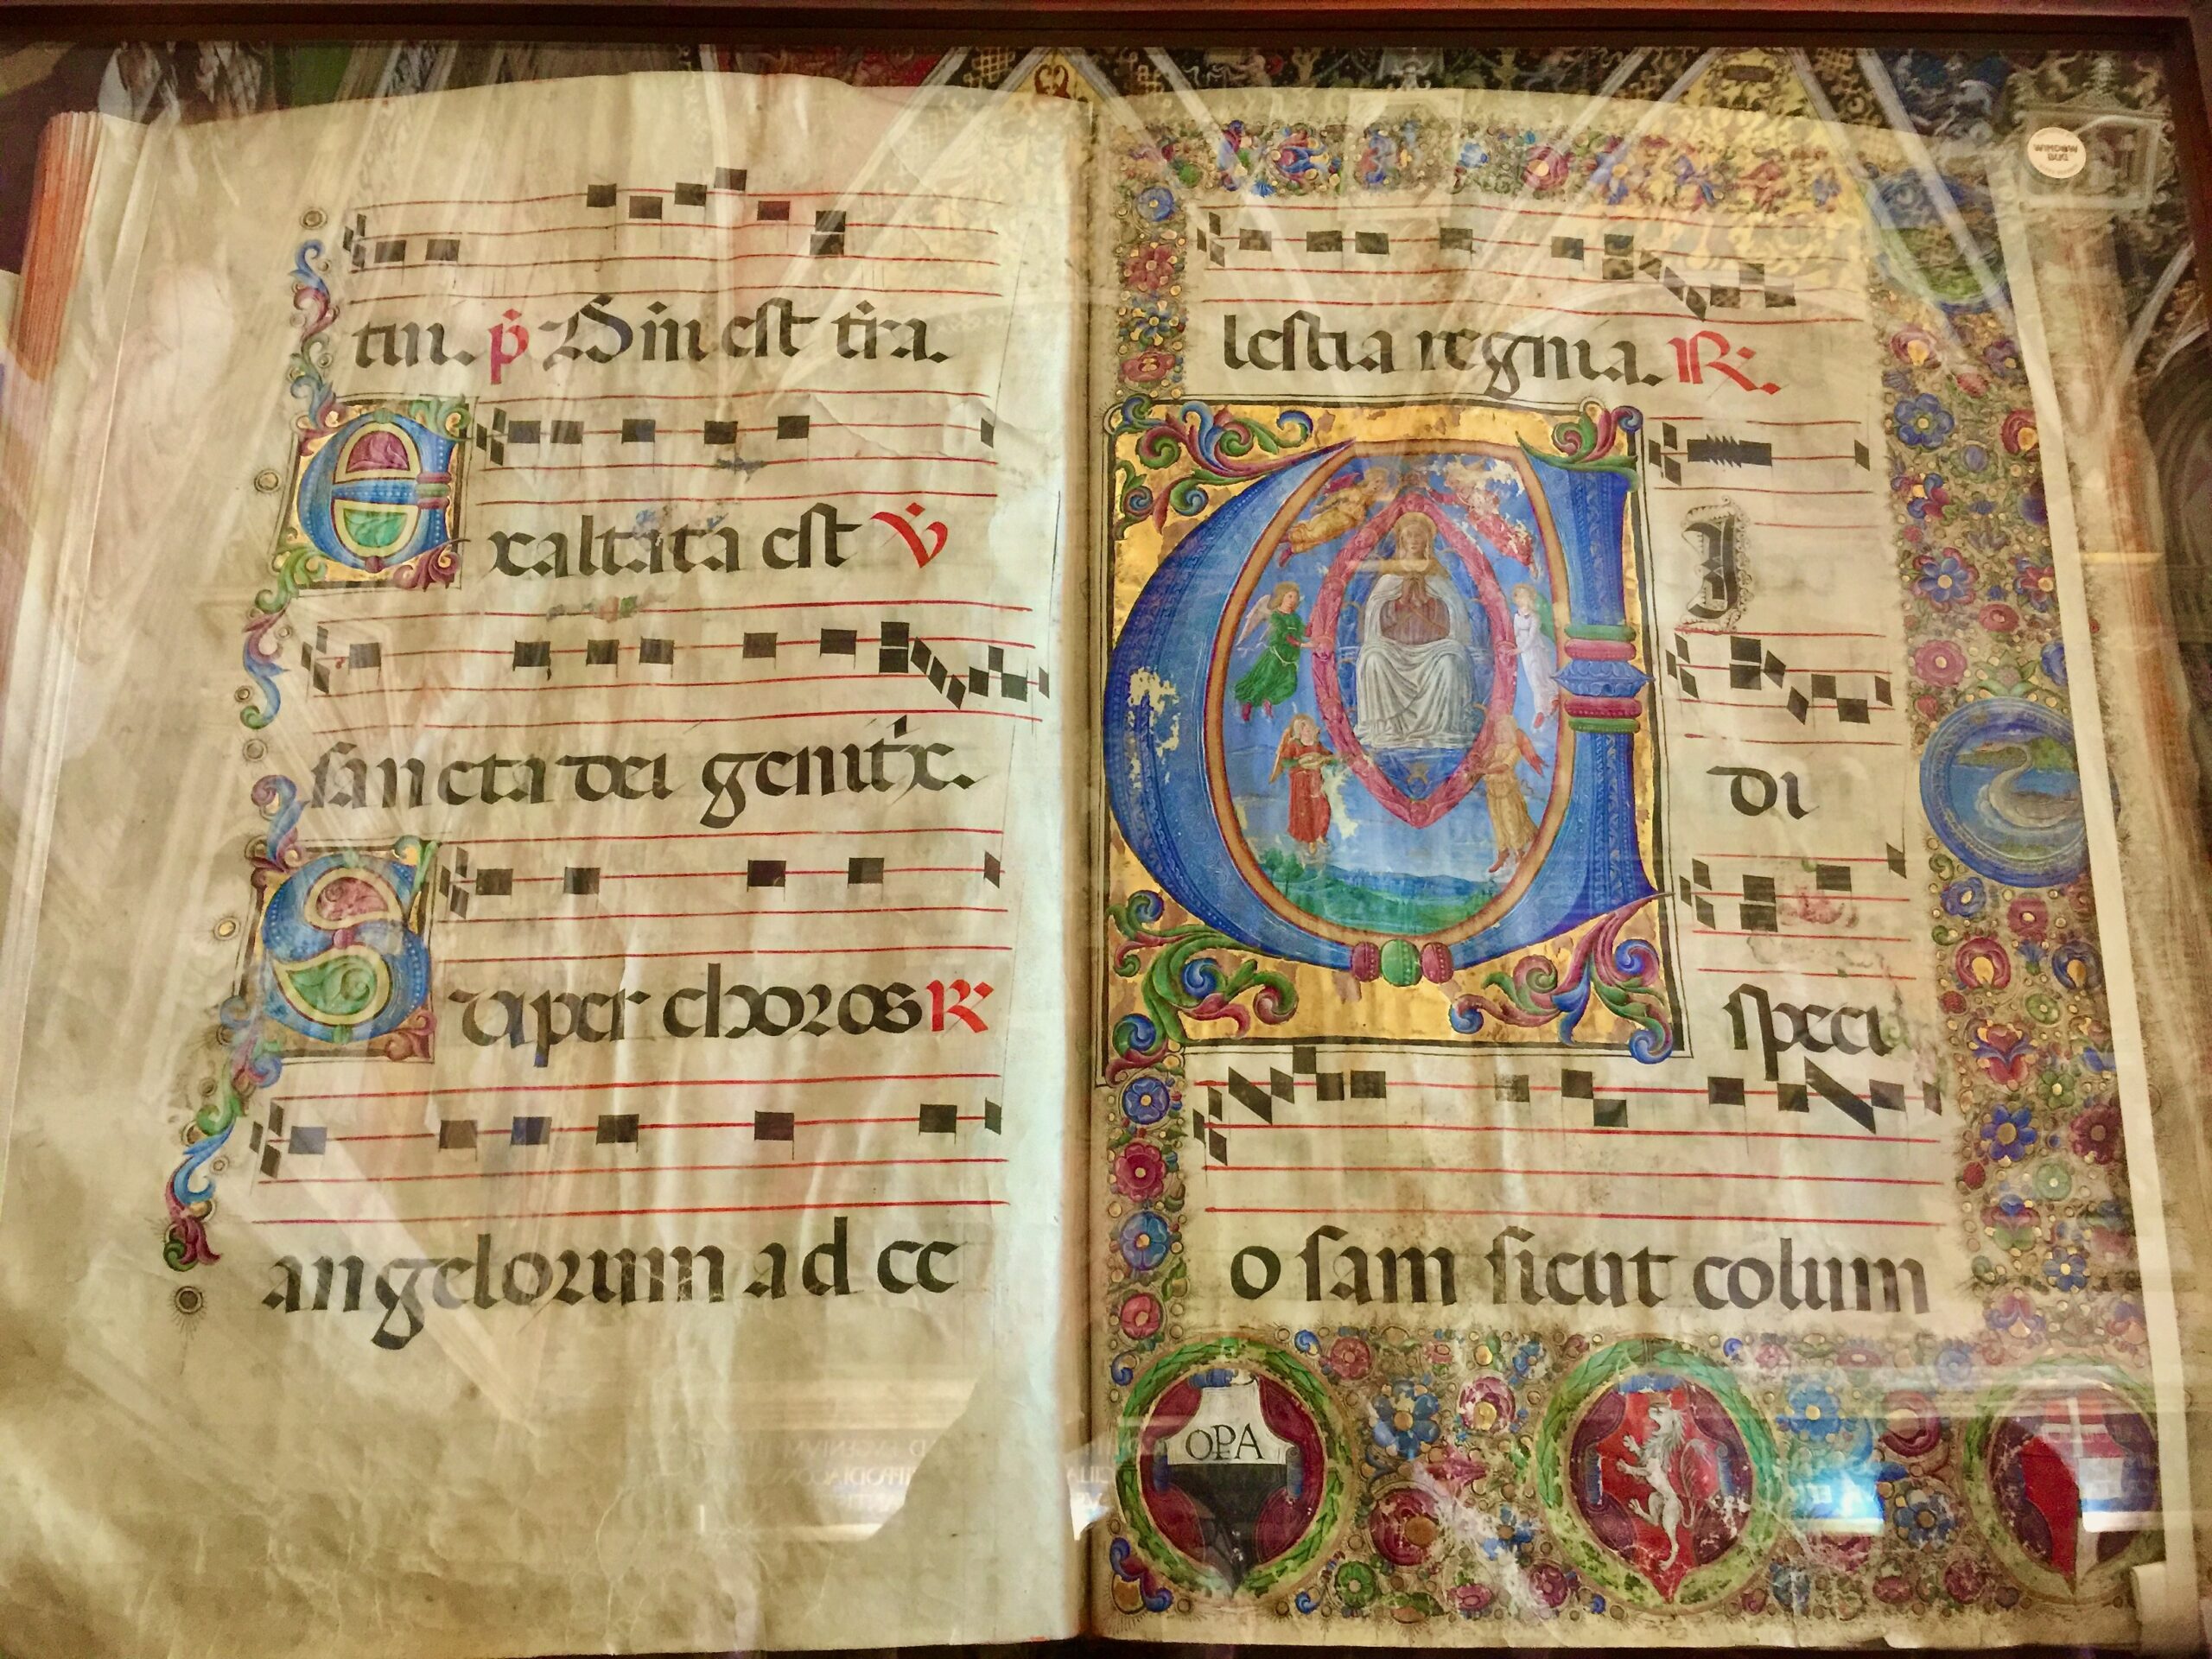 tui. p̄ Dn̄i est tr̄a.
Exaltata est ℣
sancta dei genitˈx.
Super choros ℟
angelorum ad ce
lestia regnia. ℟.
VI
di
speci
o sam sicut colum
OPA
WINDOW
BUG